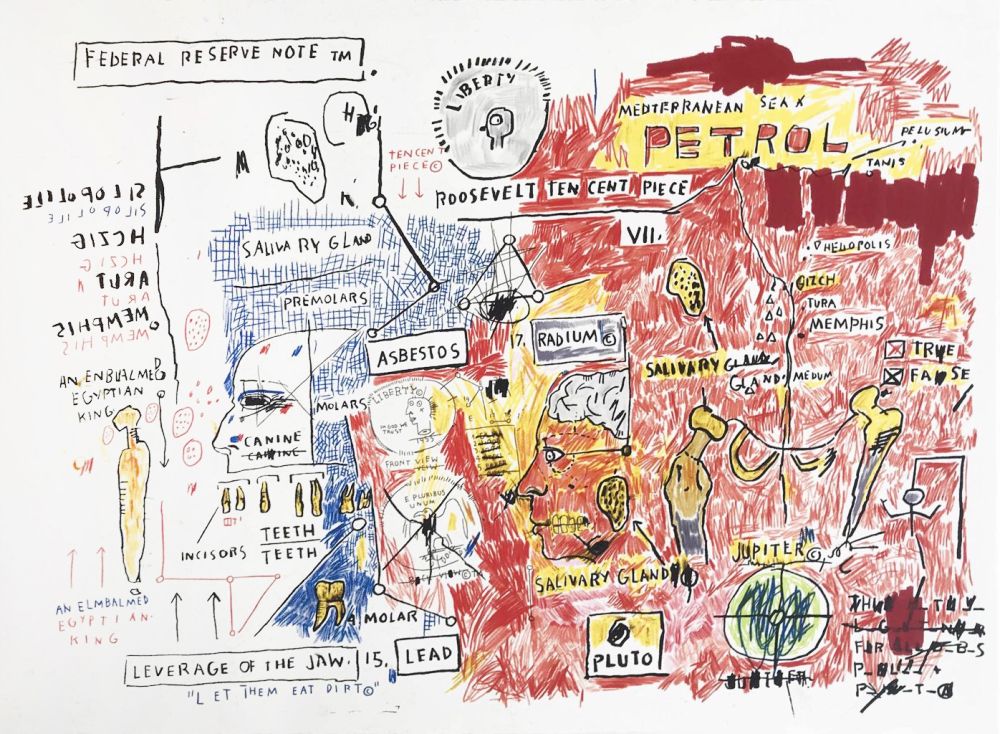 FEDERAL RESERVE NOTE TM.
LIBERTY
MEDITERRANEAN SEA
PETROL
PELUSIUM
TANIS
TEN CENT
PIECE©
ROOSEVELT TEN CENT PIECE
VII.
M
SALIVARY GLAND
PREMOLARS
HCZIG
HCZIG
ARUT
ARUT
MEMPHIS
MEMPHIS
HELIOPOLIS
GIZCH
TURA
MEMPHIS
MEDUM
ASBESTOS
17. RADIUM ©
SALIVARY GLAND
GLAND
TRUE
FALSE
AN ENBUALMED
EGYPTIAN
KING
MOLARS
LIBERTY©
IN GOD WE
TRUST
1955
FRONT VIEW
VIEW
CANINE
CANINE
E PLURIBUS
UNUM
INCISORS
TEETH
TEETH
SALIVARY GLAND
JUPITER©
AN ELMBALMED
EGYPTIAN-
KING
MOLAR
LEVERAGE OF THE JAW.
15. LEAD
"LET THEM EAT DIRT©"
PLUTO
JUPITER